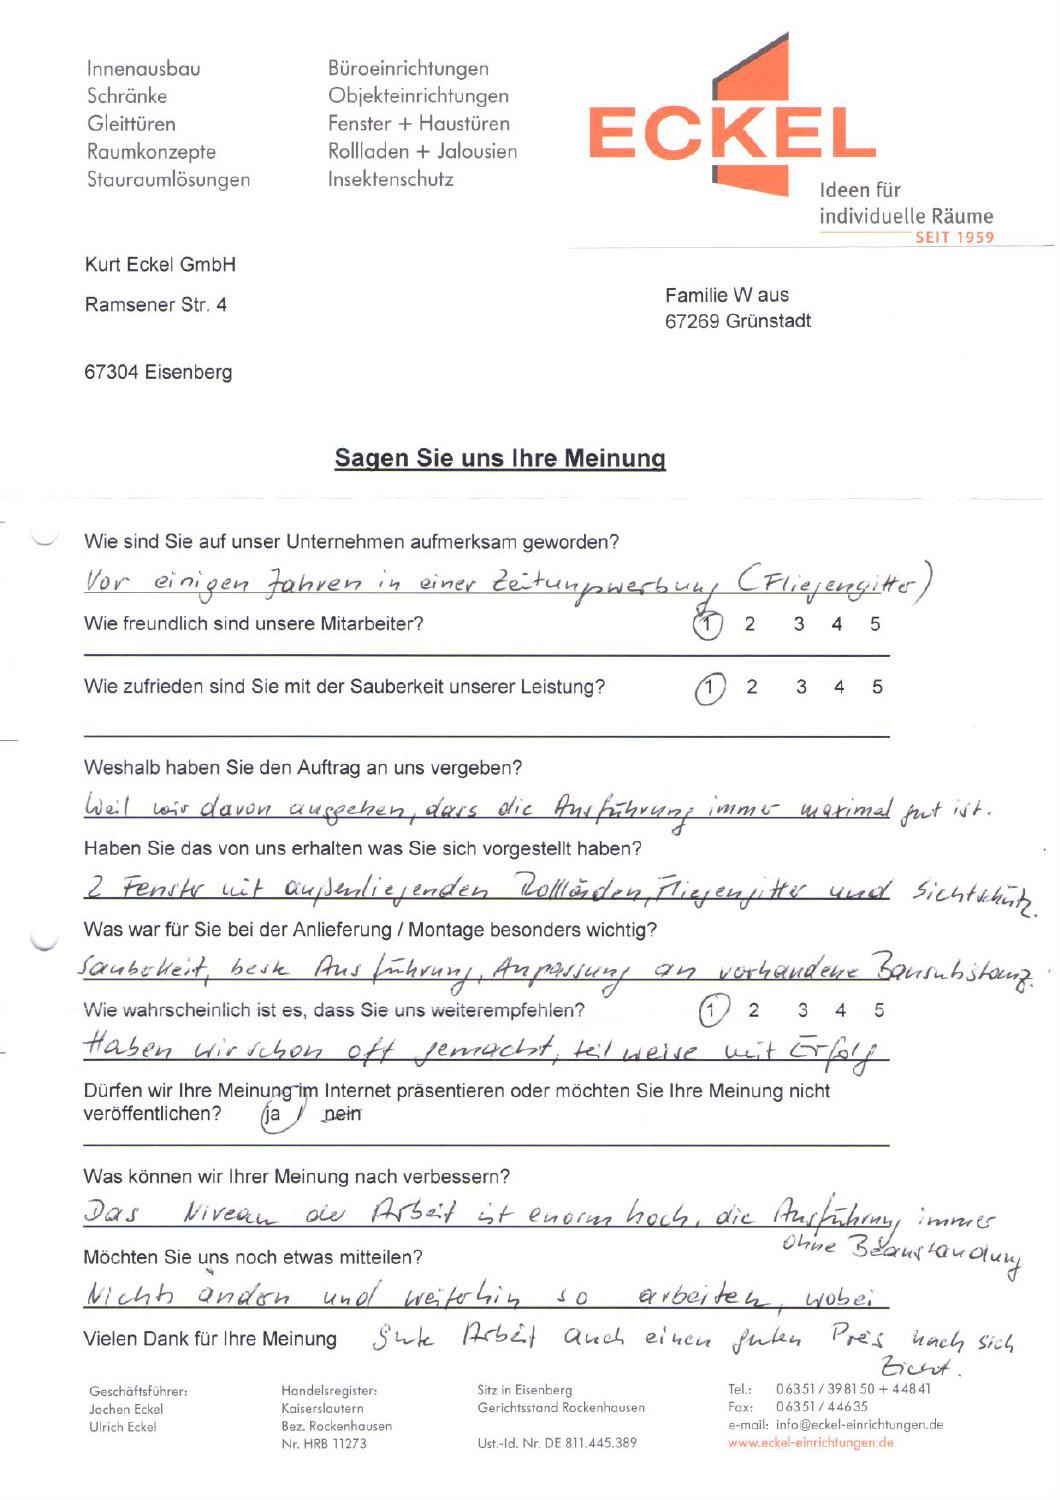 Innenausbau
Schränke
Gleittüren
Raumkonzepte
Stauraumlösungen
Büroeinrichtungen
Objekteinrichtungen
Fenster + Haustüren
Rollladen + Jalousien
Insektenschutz
ECKEL
Ideen für
individuelle Räume
SEIT 1959
Kurt Eckel GmbH
Ramsener Str. 4
67304 Eisenberg
Familie W aus
67269 Grünstadt
Sagen Sie uns Ihre Meinung
Wie sind Sie auf unser Unternehmen aufmerksam geworden?
Vor einigen Jahren in einer Zeitungswerbung (Fliegengitter)
Wie freundlich sind unsere Mitarbeiter? 1 2 3 4 5
Wie zufrieden sind Sie mit der Sauberkeit unserer Leistung? 1 2 3 4 5
Weshalb haben Sie den Auftrag an uns vergeben?
Weil wir davon ausgehen, dass die Ausführung immer maximal gut ist.
Haben Sie das von uns erhalten was Sie sich vorgestellt haben?
2 Fenster mit außenliegenden Rolläden, Fliegengitter und Sichtschutz.
Was war für Sie bei der Anlieferung / Montage besonders wichtig?
Sauberkeit, beste Ausführung, Anpassung an vorhandene Bausubstanz.
Wie wahrscheinlich ist es, dass Sie uns weiterempfehlen? 1 2 3 4 5
Haben wir schon oft gemacht, teilweise mit Erfolg
Dürfen wir Ihre Meinung im Internet präsentieren oder möchten Sie Ihre Meinung nicht
veröffentlichen? ja / nein
Was können wir Ihrer Meinung nach verbessern?
Das Niveau der Arbeit ist enorm hoch, die Ausführung immer
ohne Beanstandung
Möchten Sie uns noch etwas mitteilen?
Nichts ändern und weiterhin so arbeiten, wobei
Vielen Dank für Ihre Meinung gute Arbeit auch einen guten Preis nach sich
zieht.
Geschäftsführer:
Jochen Eckel
Ulrich Eckel
Handelsregister:
Kaiserslautern
Bez. Rockenhausen
Nr. HRB 11273
Sitz in Eisenberg
Gerichtsstand Rockenhausen
Ust.-Id. Nr. DE 811.445.389
Tel.: 06351/398150 + 44841
Fax: 06351/44635
e-mail: info@eckel-einrichtungen.de
www.eckel-einrichtungen.de